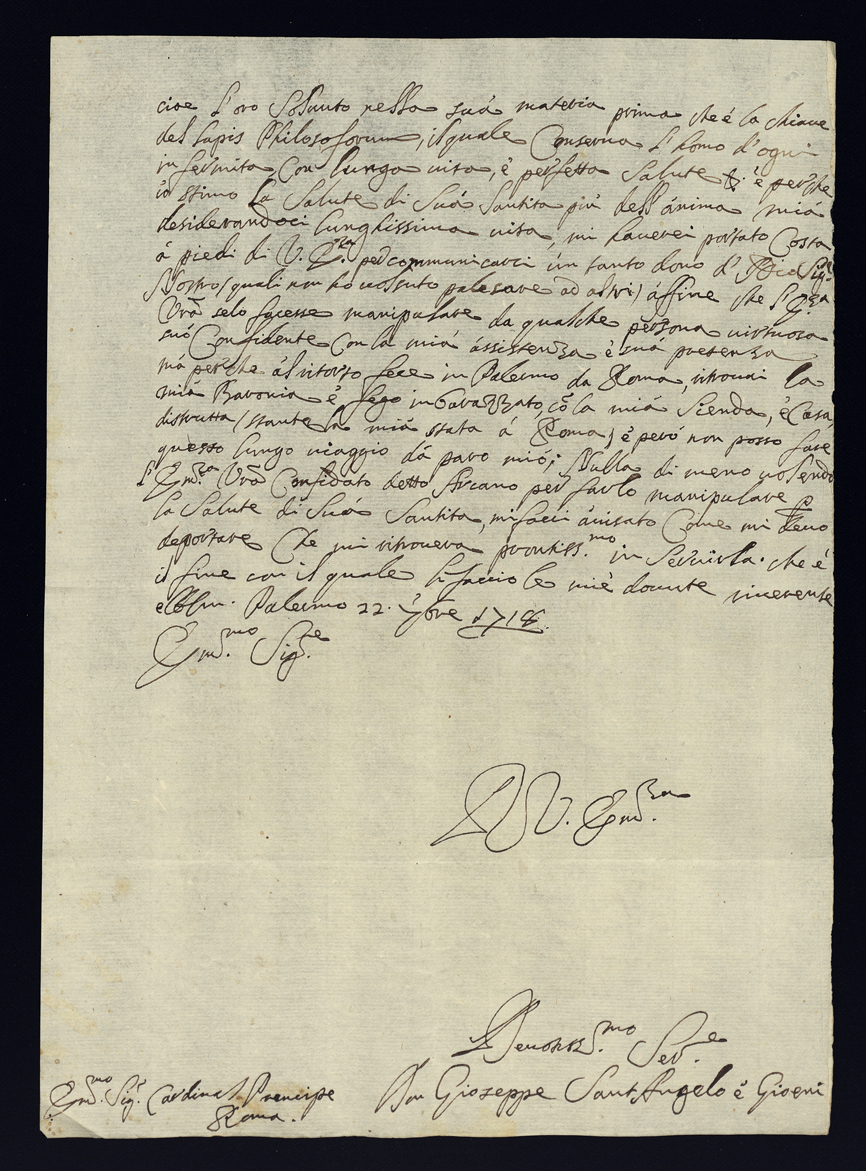 cioe l'oro soluto nella suá materia prima che é la chiaue
del Lapis Philosoforum, il quale Conserua l'homo d'ogni
infermita, Con lunga uita, é perfetta Salute é perche
io stimo la Salute di Suá Santita piú dell'ánima miá
desiderandoci lunghissima uita, mi hauerei portato Costá
á piedi di V. Em.za per communicarci un tanto dono d' Sig.r
Nostro (quali non ho uolsuto palesare ad altri) áffine che l'Em.za
Vrã selo facesse manipulare da qualche persona uirtuosa
suó Confidente Con la miá ássistenza é suá presenza
má perche ál ritorno fece in Palermo da Roma, ritrouai la
miá Baronia é fego imbarazzato, cõ la miá Sienda, é Casa
distrutta (stante la miá stata á Roma) é peró non posso fare
questo lungo uiaggio dá paro mió; Nulla di meno uolendo
l'Em.za Vrã Confidato detto Arcano per farlo manipulare p
la Salute di Suá Santita, mi facci áuisato Come mi deuo
deportare Che mi ritrouera prontiss.mo in Seruirla. che é
il fine con il quale li faccio le mié douute riuerente
Palermo 22. 9bre 1718
Em.mo Sig.re
D V. Em.za
Deuotiss.mo Ser.e
Don Gioseppe Sant'Angelo é Gioeni
Em.mo Sig.r Cardinal Prencipe
Roma.